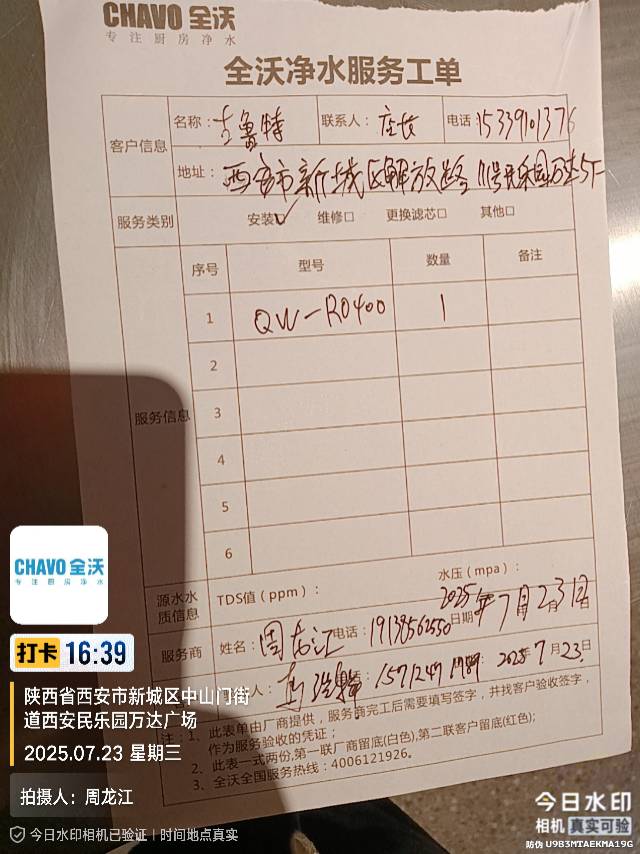 CHAVO 全沃
专注厨房净水
全沃净水服务工单
客户信息
名称：古鲁特 联系人： 店长 电话 15339101376
地址： 西安市新城区解放路111号民乐园万达5F
服务类别 安装☑ 维修口 更换滤芯口 其他口
服务信息
序号 型号 数量 备注
1 QW-RO400 1
2
3
4
5
6
源水水质信息 TDS值（ppm）： 水压（mpa）：
服务商 姓名：周龙江 电话：19138562550 日期 2025年7月23日
人： 2025 7月23日
注：1、此表单由厂商提供，服务商完工后需要填写签字，并找客户验收签字，
作为服务验收的凭证；
2、此表一式两份,第一联厂商留底(白色),第二联客户留底(红色);
3、全沃全国服务热线：4006121926。
CHAVO 全沃
专注厨房净水
打卡 16:39
陕西省西安市新城区中山门街
道西安民乐园万达广场
2025.07.23 星期三
拍摄人：周龙江
今日水印相机已验证 | 时间地点真实
今日水印
相机 真实可验
防伪 U9B3MTAEKMA19G